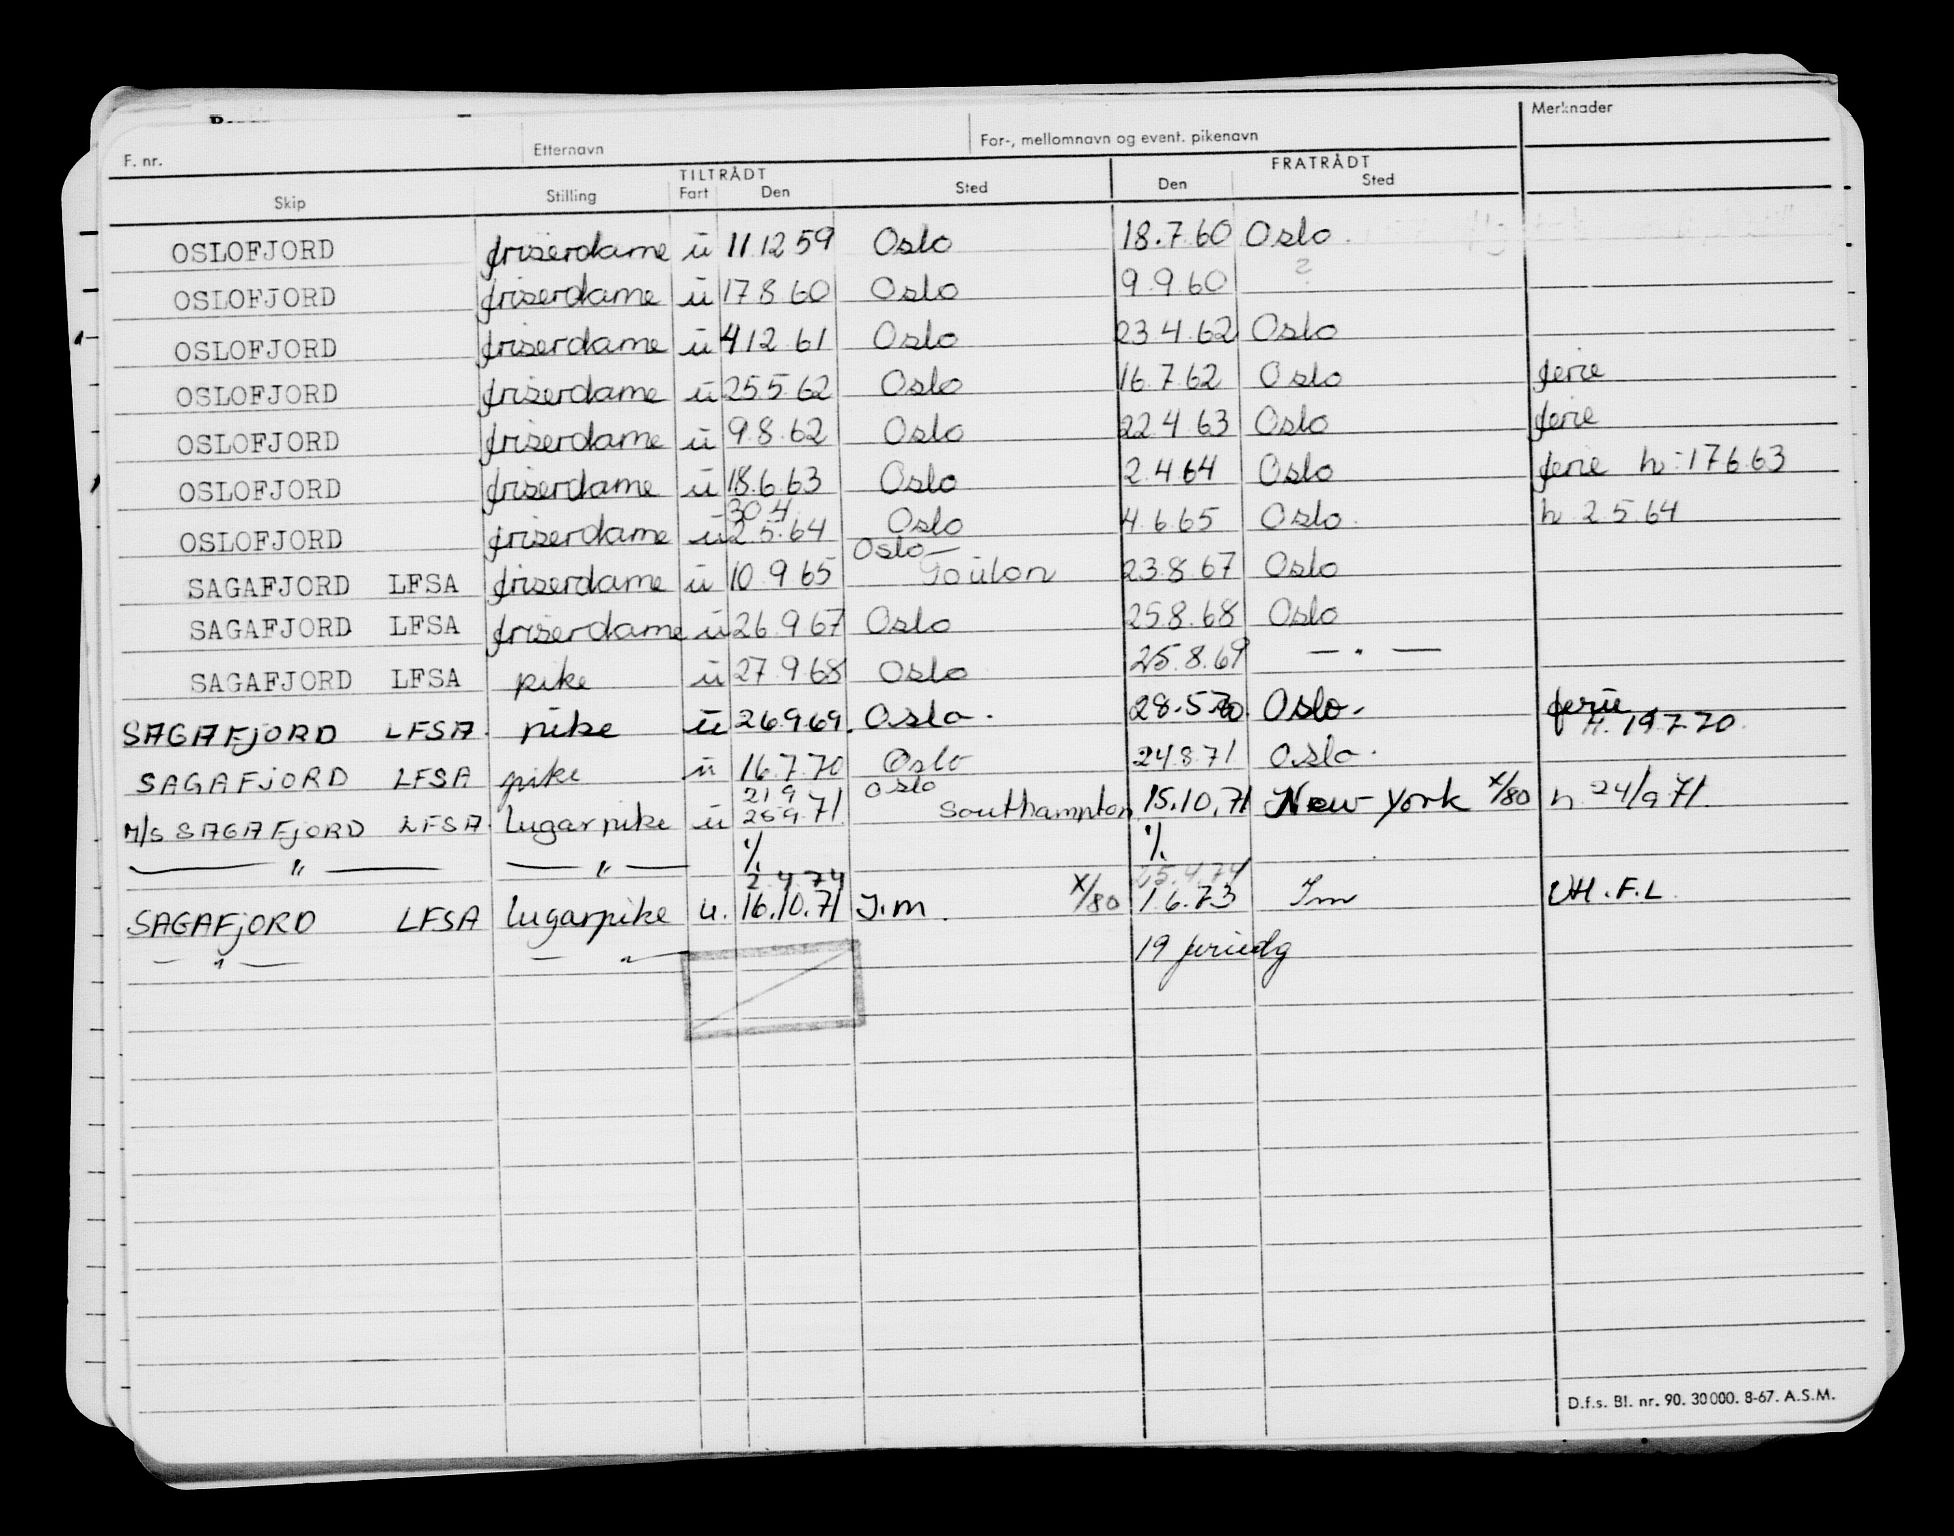 F. nr. Etternavn For-, mellomnavn og event. pikenavn Merknader
TILTRÅDT FRATRÅDT
Skip Stilling Fart Den Sted Den Sted
OSLOFJORD friserdame u 11 12 59 Oslo 18.7.60 Oslo
OSLOFJORD friserdame u 17 8 60 Oslo 9.9.60 ?
OSLOFJORD friserdame u 4 12 61 Oslo 23.4.62 Oslo
OSLOFJORD friserdame u 25 5 62 Oslo 16.7.62 Oslo ferie
OSLOFJORD friserdame u 9.8.62 Oslo 22.4.63 Oslo ferie
OSLOFJORD friserdame u 18.6.63 Oslo 2.4.64 Oslo ferie h: 17.6.63
30.4
OSLOFJORD friserdame u 2.5.64 Oslo 4.6.65 Oslo. h. 2.5.64
Oslo—
SAGAFJORD LFSA friserdame u 10.9.65 Toulon 23.8.67 Oslo
SAGAFJORD LFSA friserdame u 26.9.67 Oslo 25.8.68 Oslo
SAGAFJORD LFSA pike u 27.9.68 Oslo 25.8.69 — " —
SAGAFJORD LFSA. pike u 26.9.69. Oslo. 28.5.70. Oslo. ferie
H. 19.7.70.
SAGAFJORD LFSA pike u 16.7.70 Oslo 24.8.71 Oslo.
21.9 Oslo
M/S SAGAFJORD LFSA. Lugarpike u 25.9.71 Southampton 15.10.71 New York x/80 h 24/9.71.
— " — — " — % %
2.4.74 25.4.74
SAGAFJORD LFSA Lugarpike u. 16.10.71 I.m. x/80 1.6.73 Im UH.F.L.
— " — — " — 19 feriedg
D.f.s. Bl. nr. 90. 30000. 8-67. A.S.M.